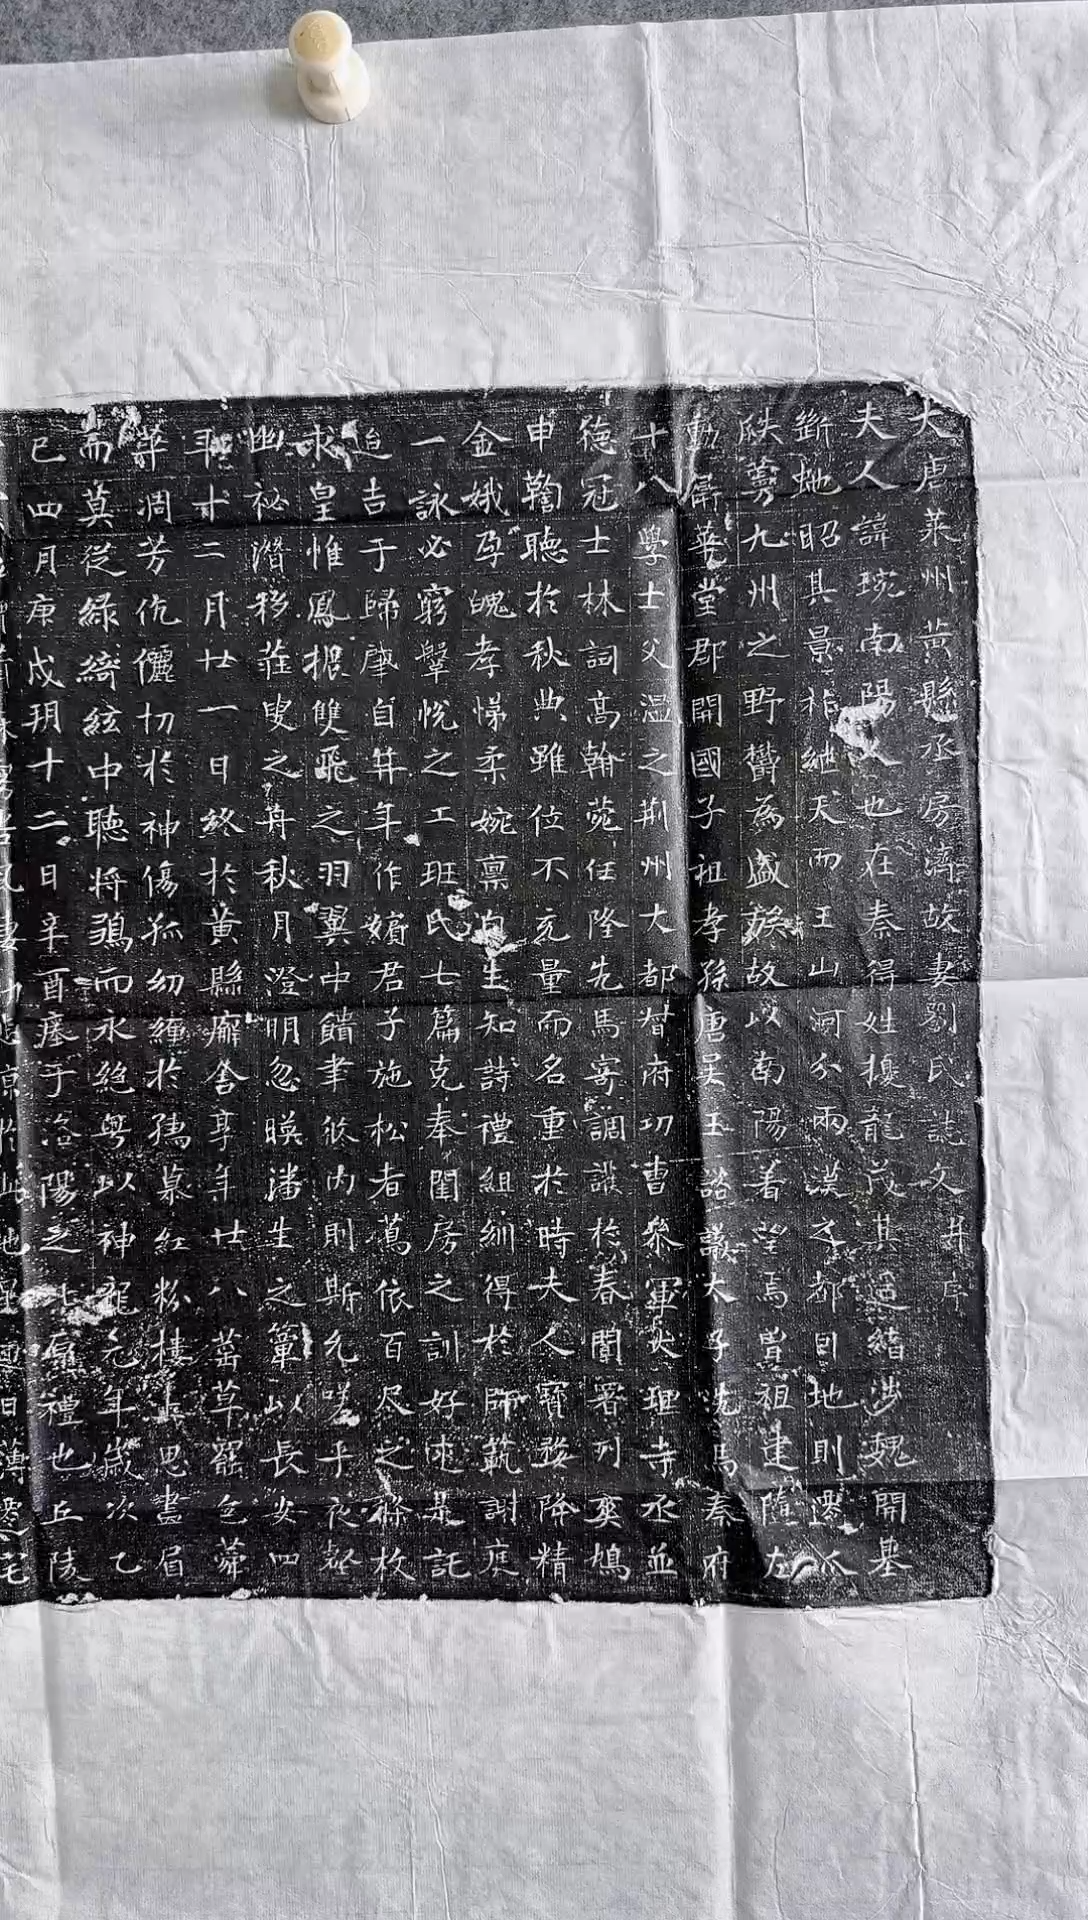 大唐萊州黃縣丞房濤故妻劉氏誌文并序
夫人諱琬南陽人也在秦得姓擾龍茂其道緒涉魏開基
斷虵昭其景祚繼天而王山河分兩漢之都因地則邊爪
瓞蔓九州之野欝為盛族故以南陽著望焉曽祖建隨左
勳衛華堂郡開國子祖孝孫唐吴王諮議太子洗馬秦府
十八學士父温之荆州大都督府功曹叅軍大理寺丞並
德冠士林詞髙翰菀任隆先馬寄調護於春闈署列爽鳩
申鞫聽於秋典雖位不充量而名重於時夫人寶婺降精
金娥孕魄孝悌柔婉禀自生知詩禮組紃得於師範謝庭
一詠必窮鞶帨之工班氏七篇克奉閨房之訓好逑是託
迨吉于歸肇自笄年作嬪君子施松者蔦依百尺之條枚
求皇惟鳳振雙飛之羽翼中饋聿俻内則斯允嗟乎夜壑
幽秘潛移莊叟之舟秋月澄明忽暎潘生之簟以長安四
年十二月廿一日終於黃縣廨舍享年廿八蒥草罷色蕣
華凋芳伉儷切於神傷孤幼纏於孺慕紅粉樓上思畵眉
而莫從緑綺絃中聽將鶵而永絕粤以神龍元年歲次乙
巳四月庚戌玥十二日辛酉塟于洛陽之北原禮也丘陵